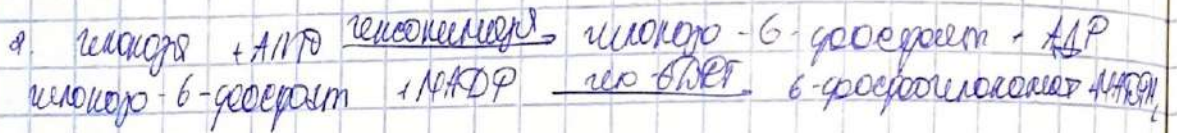 2. глюкоза + АТФ гексокиназа глюкозо-6-фосфат + АДФ
глюкозо-6-фосфат + НАДФ глю-6ФДГ 6-фосфоглюконат + НАДФН₂